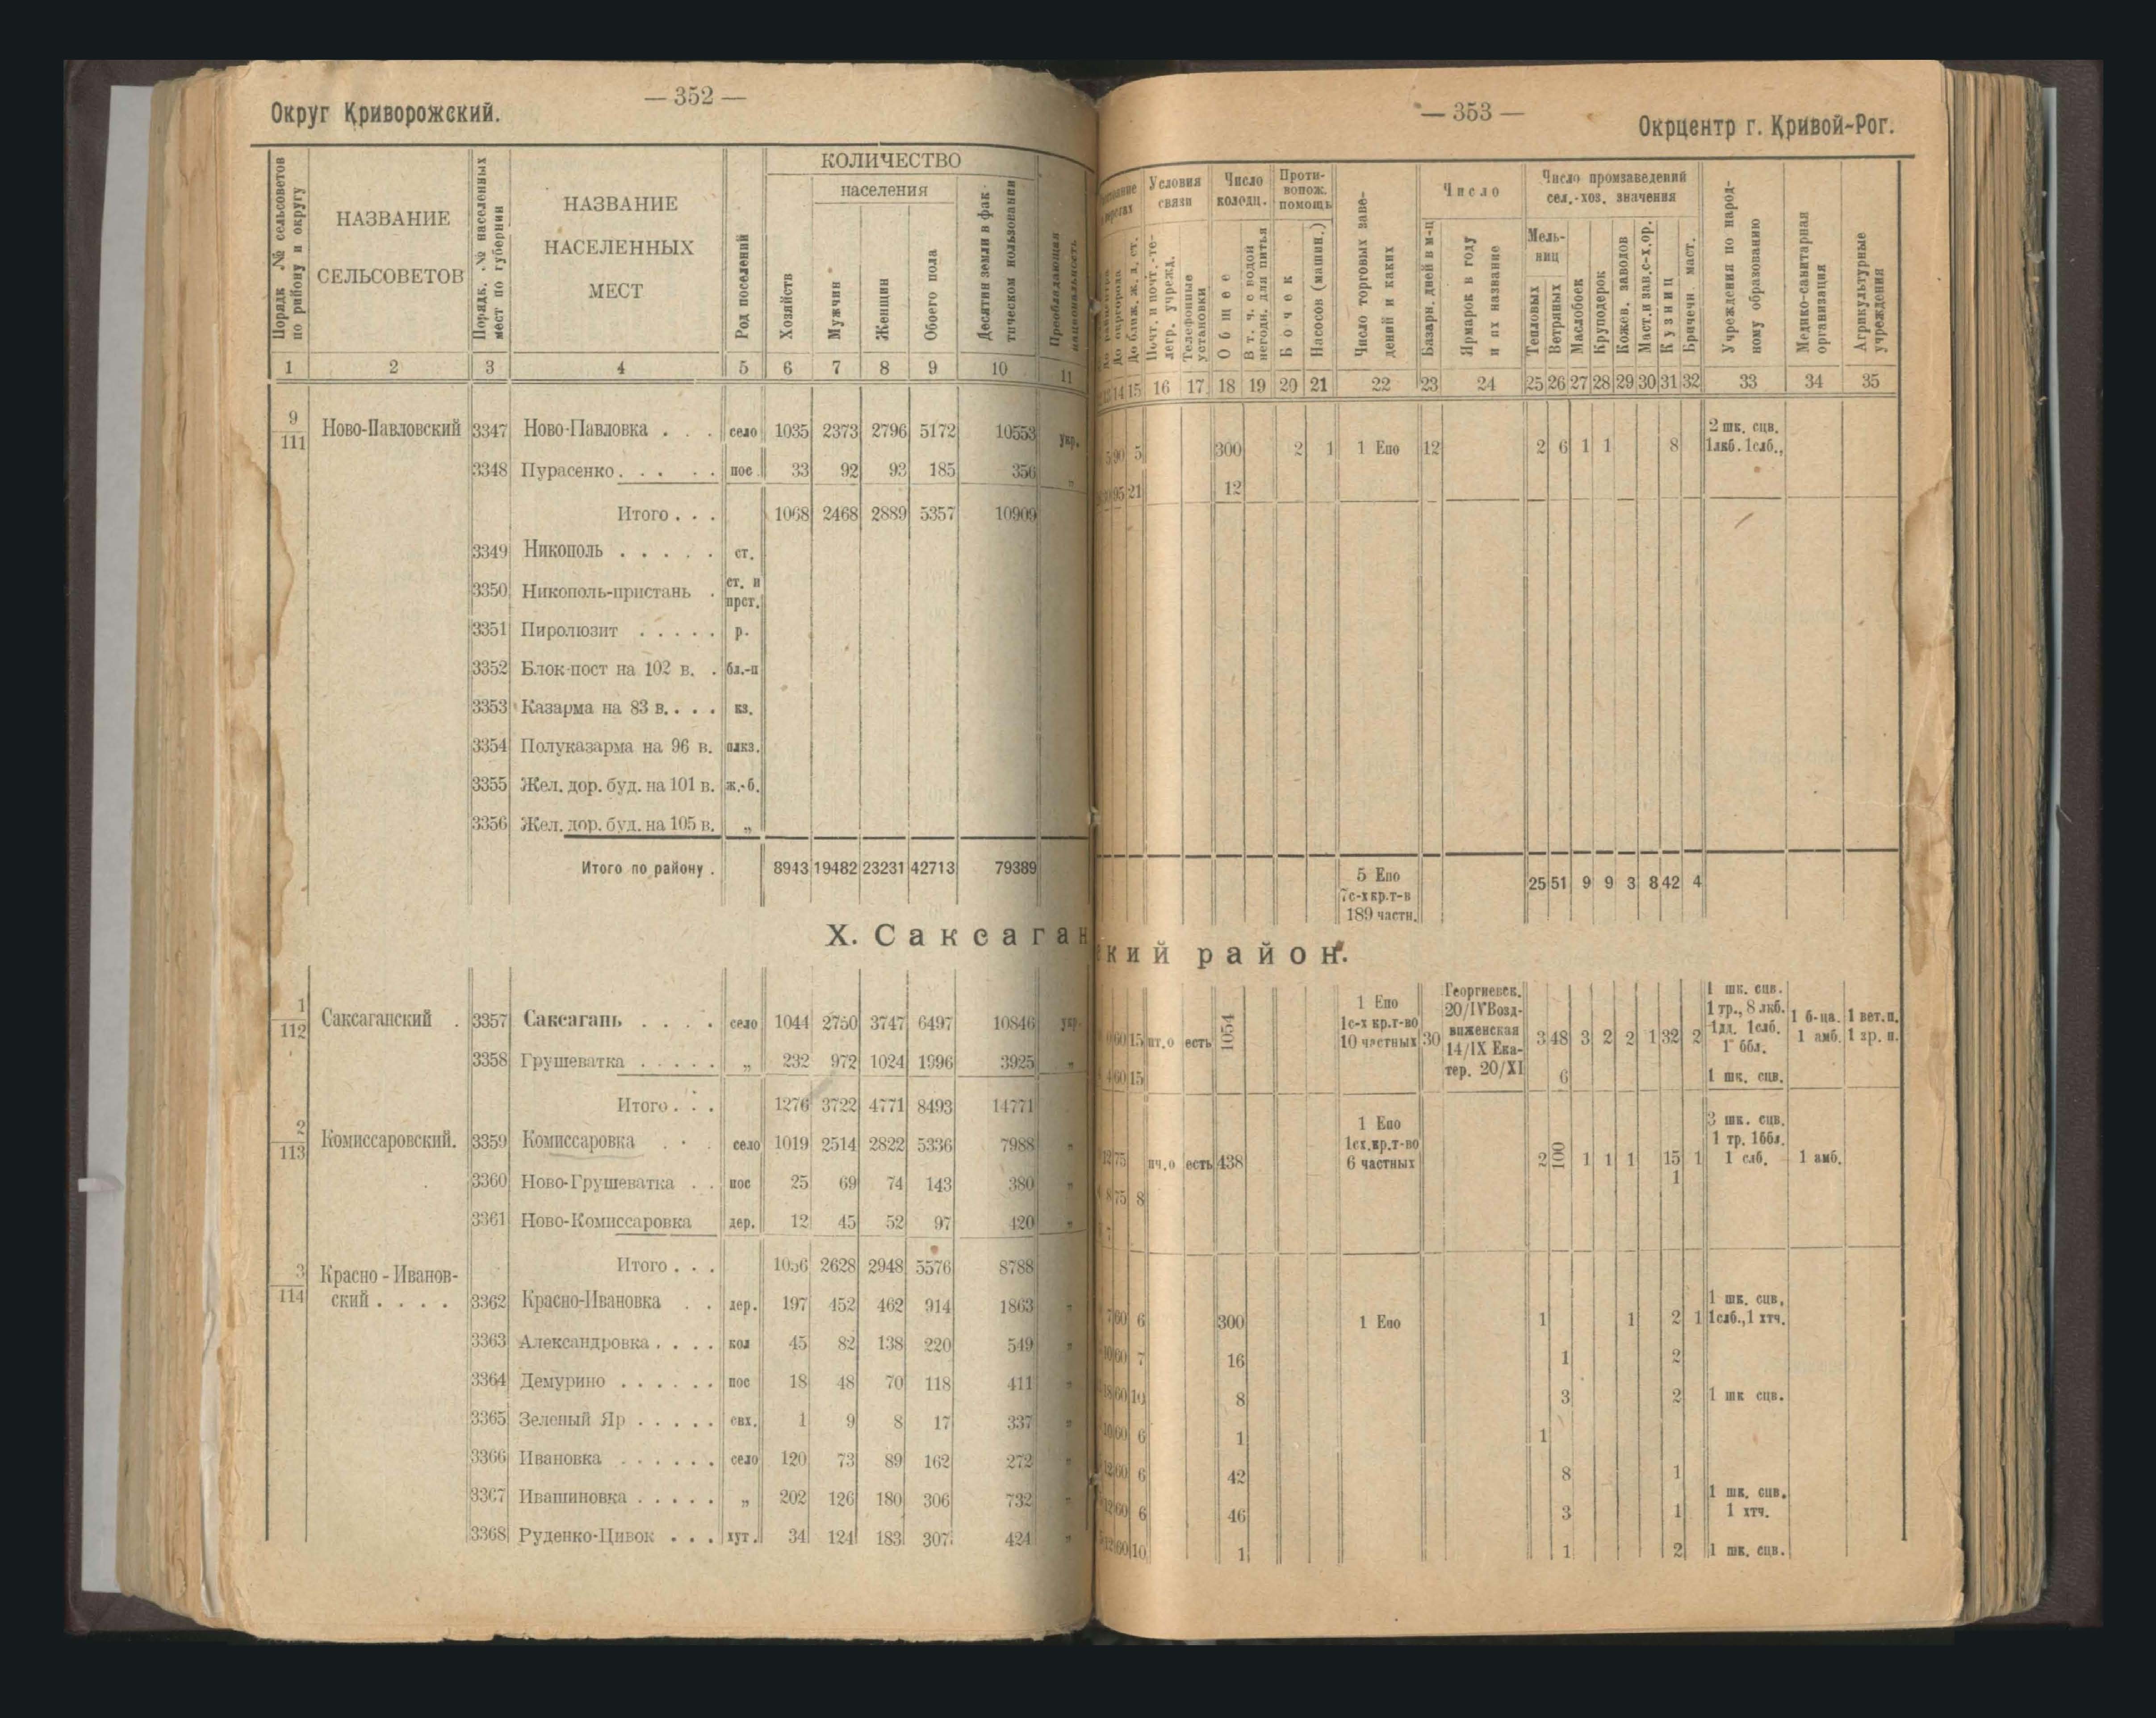 — 352 —
Округ Криворожский.
Порядк. № сельсоветов по району и округу
НАЗВАНИЕ СЕЛЬСОВЕТОВ
Порядк. № населенных мест по губернии
НАЗВАНИЕ НАСЕЛЕННЫХ МЕСТ
Род поселений
КОЛИЧЕСТВО
населения
Хозяйств
Мужчин
Женщин
Обоего пола
Десятин земли в фактическом пользовании
Преобладающая национальность
1 2 3 4 5 6 7 8 9 10 11
9/111 Ново-Павловский 3347 Ново-Павловка . . . село 1035 2373 2796 5172 10553 укр.
3348 Пурасенко . . . . . пос. 33 92 93 185 356 „
Итого . . . 1068 2468 2889 5357 10909
3349 Никополь . . . . . ст.
3350 Никополь-пристань . ст. и прст.
3351 Пиролюзит . . . . . р.
3352 Блок-пост на 102 в. . бл.-п
3353 Казарма на 83 в. . . . кз.
3354 Полуказарма на 96 в. плкз.
3355 Жел. дор. буд. на 101 в. ж.-б.
3356 Жел. дор. буд. на 105 в. „
Итого по району . 8943 19482 23231 42713 79389
X. Саксаган
1/112 Саксаганский . 3357 Саксагань . . . . село 1044 2750 3747 6497 10846 укр.
3358 Грушеватка . . . . . „ 232 972 1024 1996 3925 „
Итого . . . 1276 3722 4771 8493 14771
2/113 Комиссаровский. 3359 Комиссаровка . . . село 1019 2514 2822 5336 7988 „
3360 Ново-Грушеватка . . пос 25 69 74 143 380 „
3361 Ново-Комиссаровка дер. 12 45 52 97 420 „
Итого . . . 1056 2628 2948 5576 8788
3/114 Красно-Ивановский . . . . 3362 Красно-Ивановка . . дер. 197 452 462 914 1863 „
3363 Александровка . . . . кол 45 82 138 220 549 „
3364 Демурино . . . . . . пос 18 48 70 118 411 „
3365 Зеленый Яр . . . . . свх. 1 9 8 17 337 „
3366 Ивановка . . . . . . село 120 73 89 162 272 „
3367 Ивашиновка . . . . . „ 202 126 180 306 732 „
3368 Руденко-Цивок . . . хут. 34 124 183 307 424 „
— 353 —
Окрцентр г. Кривой-Рог.
До ближ. ж. д. ст.
Условия связи
Почт. и почт.-телегр. учрежд.
Телефонные установки
Число колодц.
Общее
В т. ч. с водой негодн. для питья
Противопож. помощь
Бочек
Насосов (машин.)
Число торговых заведений и каких
Число
Базарн. дней в м-ц
Ярмарок в году и их название
Число промзаведений сел.-хоз. значения
Мельниц
Тепловых
Ветряных
Маслобоек
Круподерок
Кожев. заводов
Маст. и зав. с-х. ор.
Кузниц
Бричечн. маст.
Учреждения по народному образованию
Медико-санитарная организация
Агрикультурные учреждения
14 15 16 17 18 19 20 21 22 23 24 25 26 27 28 29 30 31 32 33 34 35
90 5 300 2 1 1 Епо 12 2 6 1 1 8 2 шк. сцв. 1лкб. 1слб.,
95 21 12
5 Епо
7с-хкр.т-в
189 частн.
25 51 9 9 3 8 42 4
ский район.
60 15 пт.о есть 1054 1 Епо 1с-х кр.т-во 10 частных 30 Георгиевск. 20/IV Воздвиженская 14/IX Екатер. 20/XI 3 48 3 2 2 1 32 2 1 шк. сцв. 1 тр., 8 лкб. 1дд. 1слб. 1 ббл. 1 б-ца. 1 амб. 1 вет.п. 1 зр. п.
60 15 6 1 шк. сцв.
75 пч.о есть 438 1 Епо 1сх.кр.т-во 6 частных 2 100 1 1 1 15 1 3 шк. сцв. 1 тр. 1ббл. 1 слб. 1 амб.
75 8 1
60 6 300 1 Епо 1 1 2 1 1 шк. сцв, 1слб.,1 хтч.
60 7 16 1 2
60 10 8 3 2 1 шк сцв.
60 6 1 1
60 6 42 8 1
60 6 46 3 1 1 шк. сцв. 1 хтч.
60 10 1 1 2 1 шк. сцв.